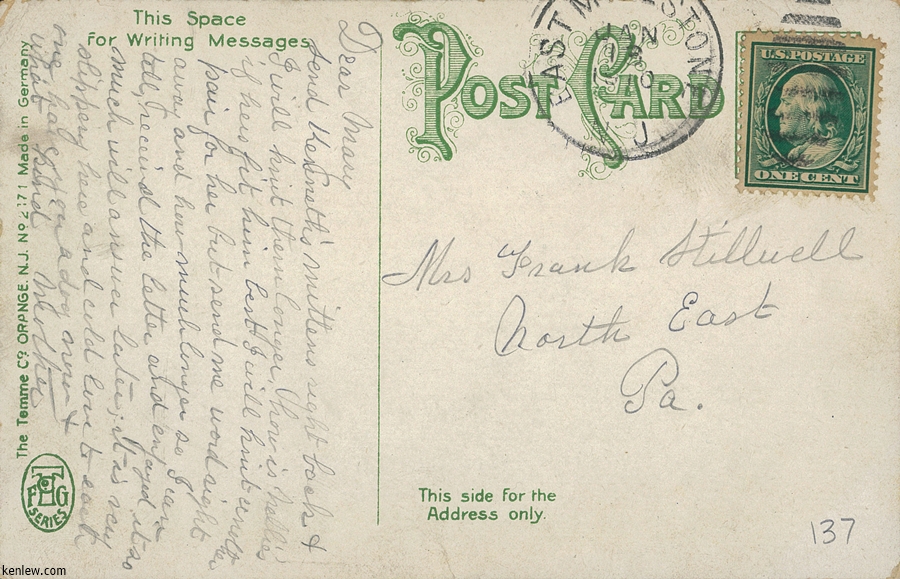 This Space
For Writing Messages.
POST CARD
EAST M STON
JAN
U.S. POSTAGE
ONE CENT
Dear Mary
Send Kenneth's mittens right back &
I will knit them longer, how is Nellie's
will knit another
pair for her but send me word right
away and how much longer so I can
tell, received the letter and enjoyed it so
much will answer later, it is very
slippery here and cold love to each
one, Hal got a dog now &
what kind Mother
Mrs Frank Stillwell
North East
Pa.
This side for the
Address only.
137
The Temme Co. ORANGE. N.J. No 271 Made in Germany
SERIES
kenlew.com